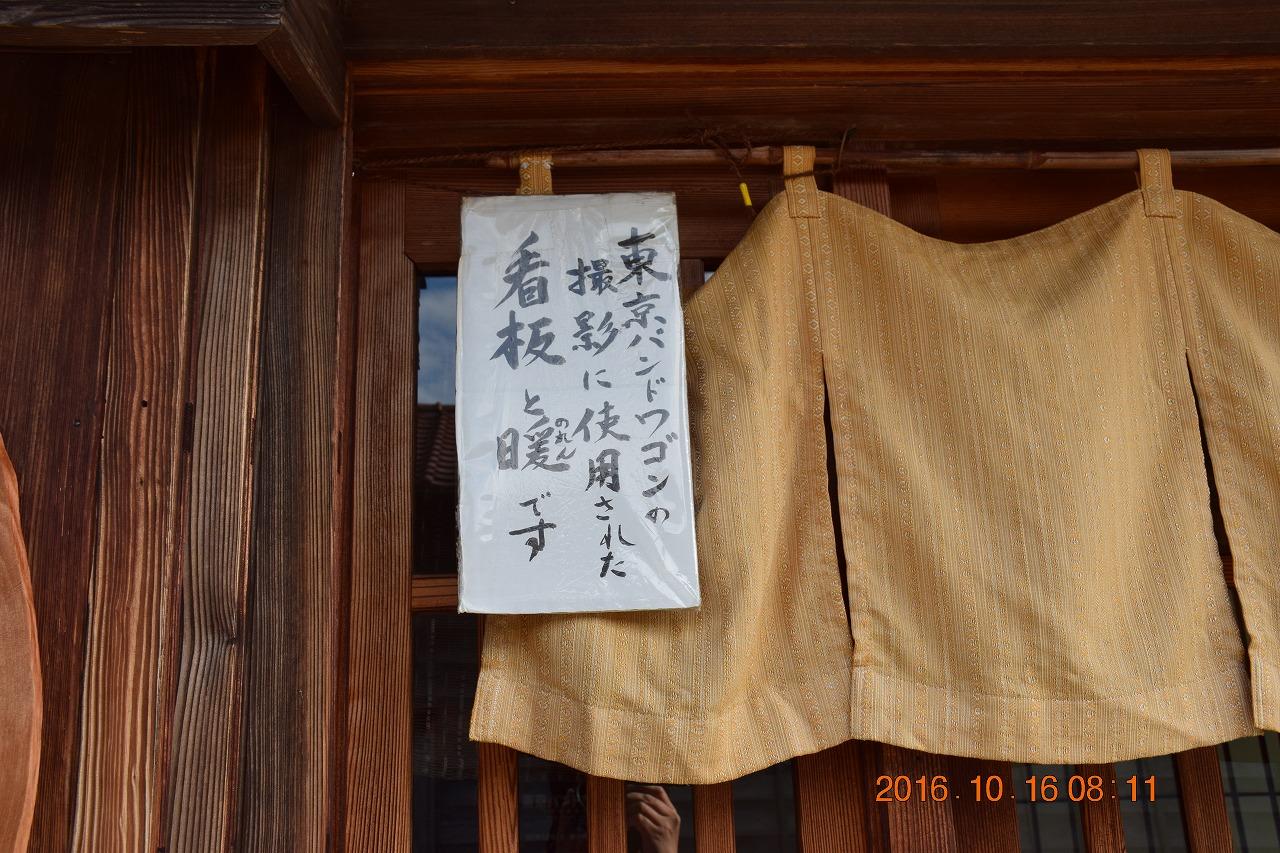 東京バンドワゴンの
撮影に使用された
看板と暖です
のれん
2016.10.16 08:11